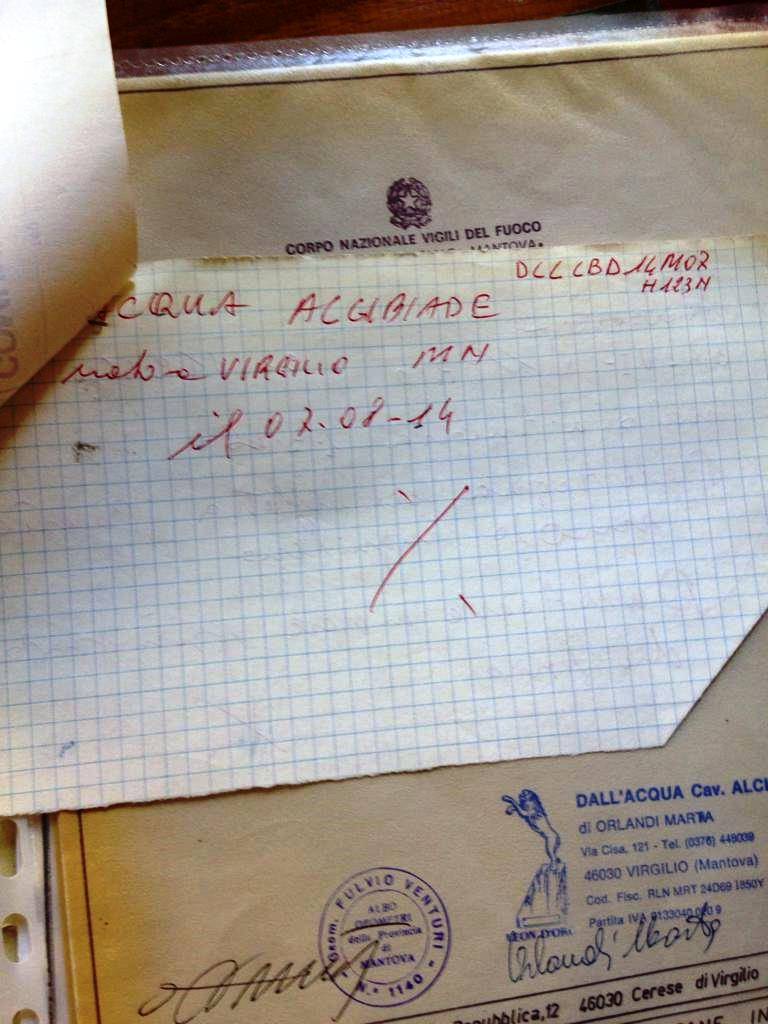 CORPO NAZIONALE VIGILI DEL FUOCO
MANTOVA.
DLLLBD14M07
H123N
ACQUA ALCIBIADE
nato a VIRGILIO MN
il 07.08-14
DALL'ACQUA Cav. ALCI
di ORLANDI MARTA
Via Cisa, 121 - Tel. (0376) 448039
46030 VIRGILIO (Mantova)
Cod. Fisc. RLN MRT 24D69 I850Y
Partita IVA
LEON D'ORO
Orlandi Marta
Geom. FULVIO VENTURI
ALBO
GEOMETRI
della Provincia
di
MANTOVA
N.° 1140
pubblica, 12 46030 Cerese di Virgilio